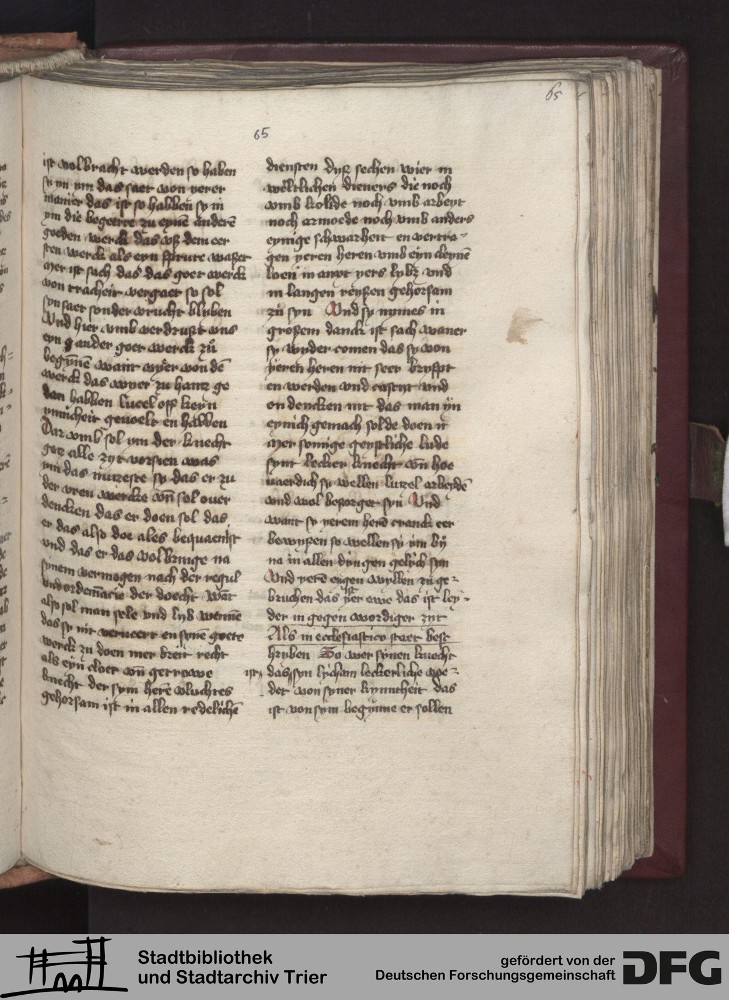 65
65
ist volbracht werden so haben
sy in ym das saet von yerer
manier das ist so habben sy in
ym die begerte zu eynē anderē
goeden werck das vß dem eer
sten werck als eyn sprute waßer
Mer ist sach das das goet werck
von tracheit vergaet so sol
syn saet sonder vrucht bliben
Vnd hier vmb verdrußt vns
eyn ander goet werck zů
begȳnē want wyer von dē
werck das wyer zu hantz ge
dan habben lutzel off keyn
ynnicheit gevoelt en habben
Dar vmb sol ym der knecht
gotz alle zyt vorsien was
ym das nutzeste sy das er zu
der vren wercke vñ sol over
dencken das er doen sol das
er das also doe als bequaemst
vnd das er das volbringe na
synem vermogen nach der regul
vnd ordenācie der doecht want
also sol man sele vnd lyb wenē
das sy nit verveert en syne goete
werck zu doen mer bereit recht
als eyn cloer vñ getruwe
knecht der sym herē vluchtes
gehorsam ist in allen redelichē
diensten Dyß sechen wier in
weltlichen dieners die noch
vmb kolde noch vmb arbeyt
noch armoede noch vmb anders
eynige schwarheit en vertra-
gen yeren heren vmb eyn cleynē
loen in anxt yers lybß vnd
in langen reyßen gehorsam
zů syn Vnd sy nymes in
großem danck ist sach waner
sy wyder comen das sy von
yeren heren nit seer bryspt
en werden vnd castyt vnd
en dencken nit das man yn
eynich gemach solde doen
Mer somige geystliche lude
synt lecker knecht vñ hoe
vaerdich sy wellen lutzel arbeydē
vnd wol besorget syn Vnd
want sy yerem herē cranck eer
bewyßen so wellen sy ym by
na in allen dyngen gelich syn
Vnd yerē eygen wyllen zu ge-
bruchen das yer ewe das ist ley-
der in gegen wordiger zyt
Als in ecclesiastico staet best
hryben So wer synen knecht
ist das syn lycham leckerliche voe-
det von syner kyntheit das
ist von sym begynne er sollen
Stadtbibliothek
und Stadtarchiv Trier
gefördert von der
Deutschen Forschungsgemeinschaft
DFG